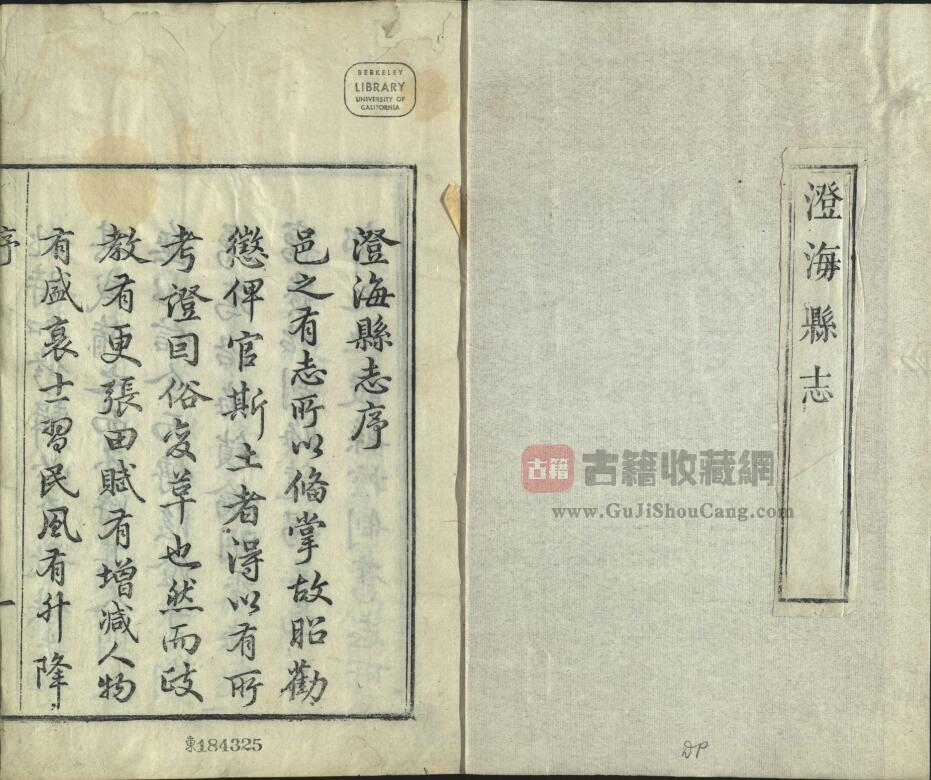 澄海縣志
澄海縣志序
邑之有志所以備掌故昭勸
懲俾官斯土者得以有所
考證因俗変革也然而政
教有更張田賦有增減人物
有盛衰士習民風有升降
序
一
BERKELEY
LIBRARY
UNIVERSITY OF
CALIFORNIA
東184325
DP
古籍
古籍收藏網
www.GuJiShouCang.com